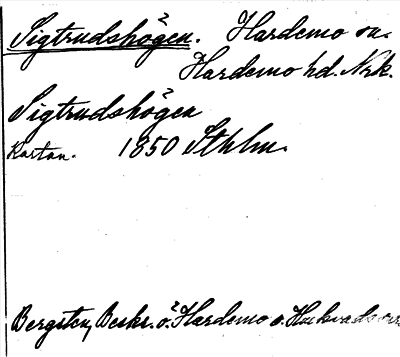 Sigtrudshögen. Hardemo sn.
Hardemo hd. Nrk.
Sigtrudshögen
Kartan. 1850 Sthlm.
Bergsten, Beskr. ö. Hardemo o.